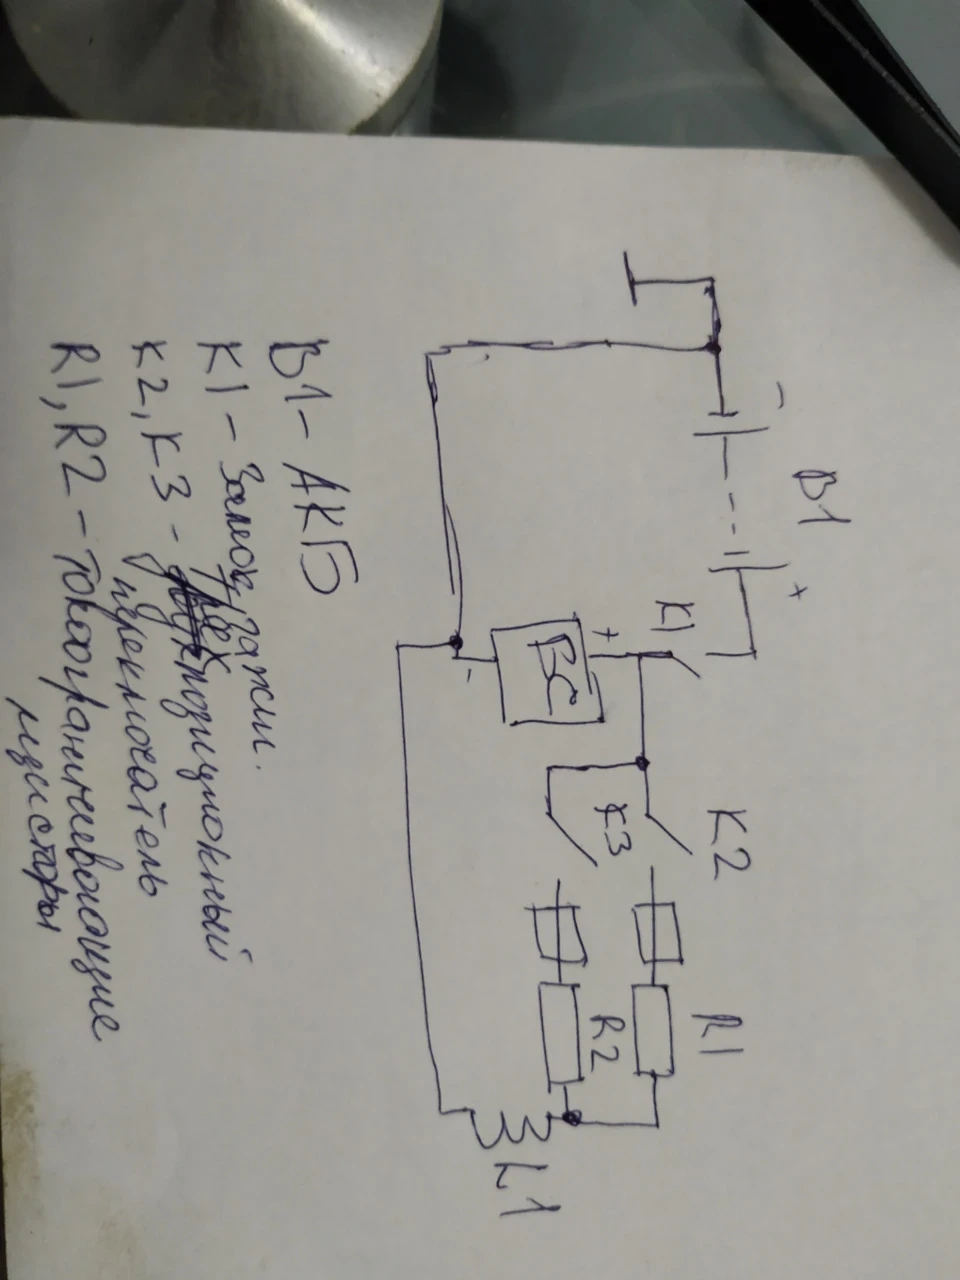 B1
-
+
K1
+
BC
-
K2
K3
R1
R2
L1
B1 – АКБ
K1 – Замок зажиг.
K2, K3 – трёхпозиционный
переключатель
R1, R2 – токоограничивающие
резисторы